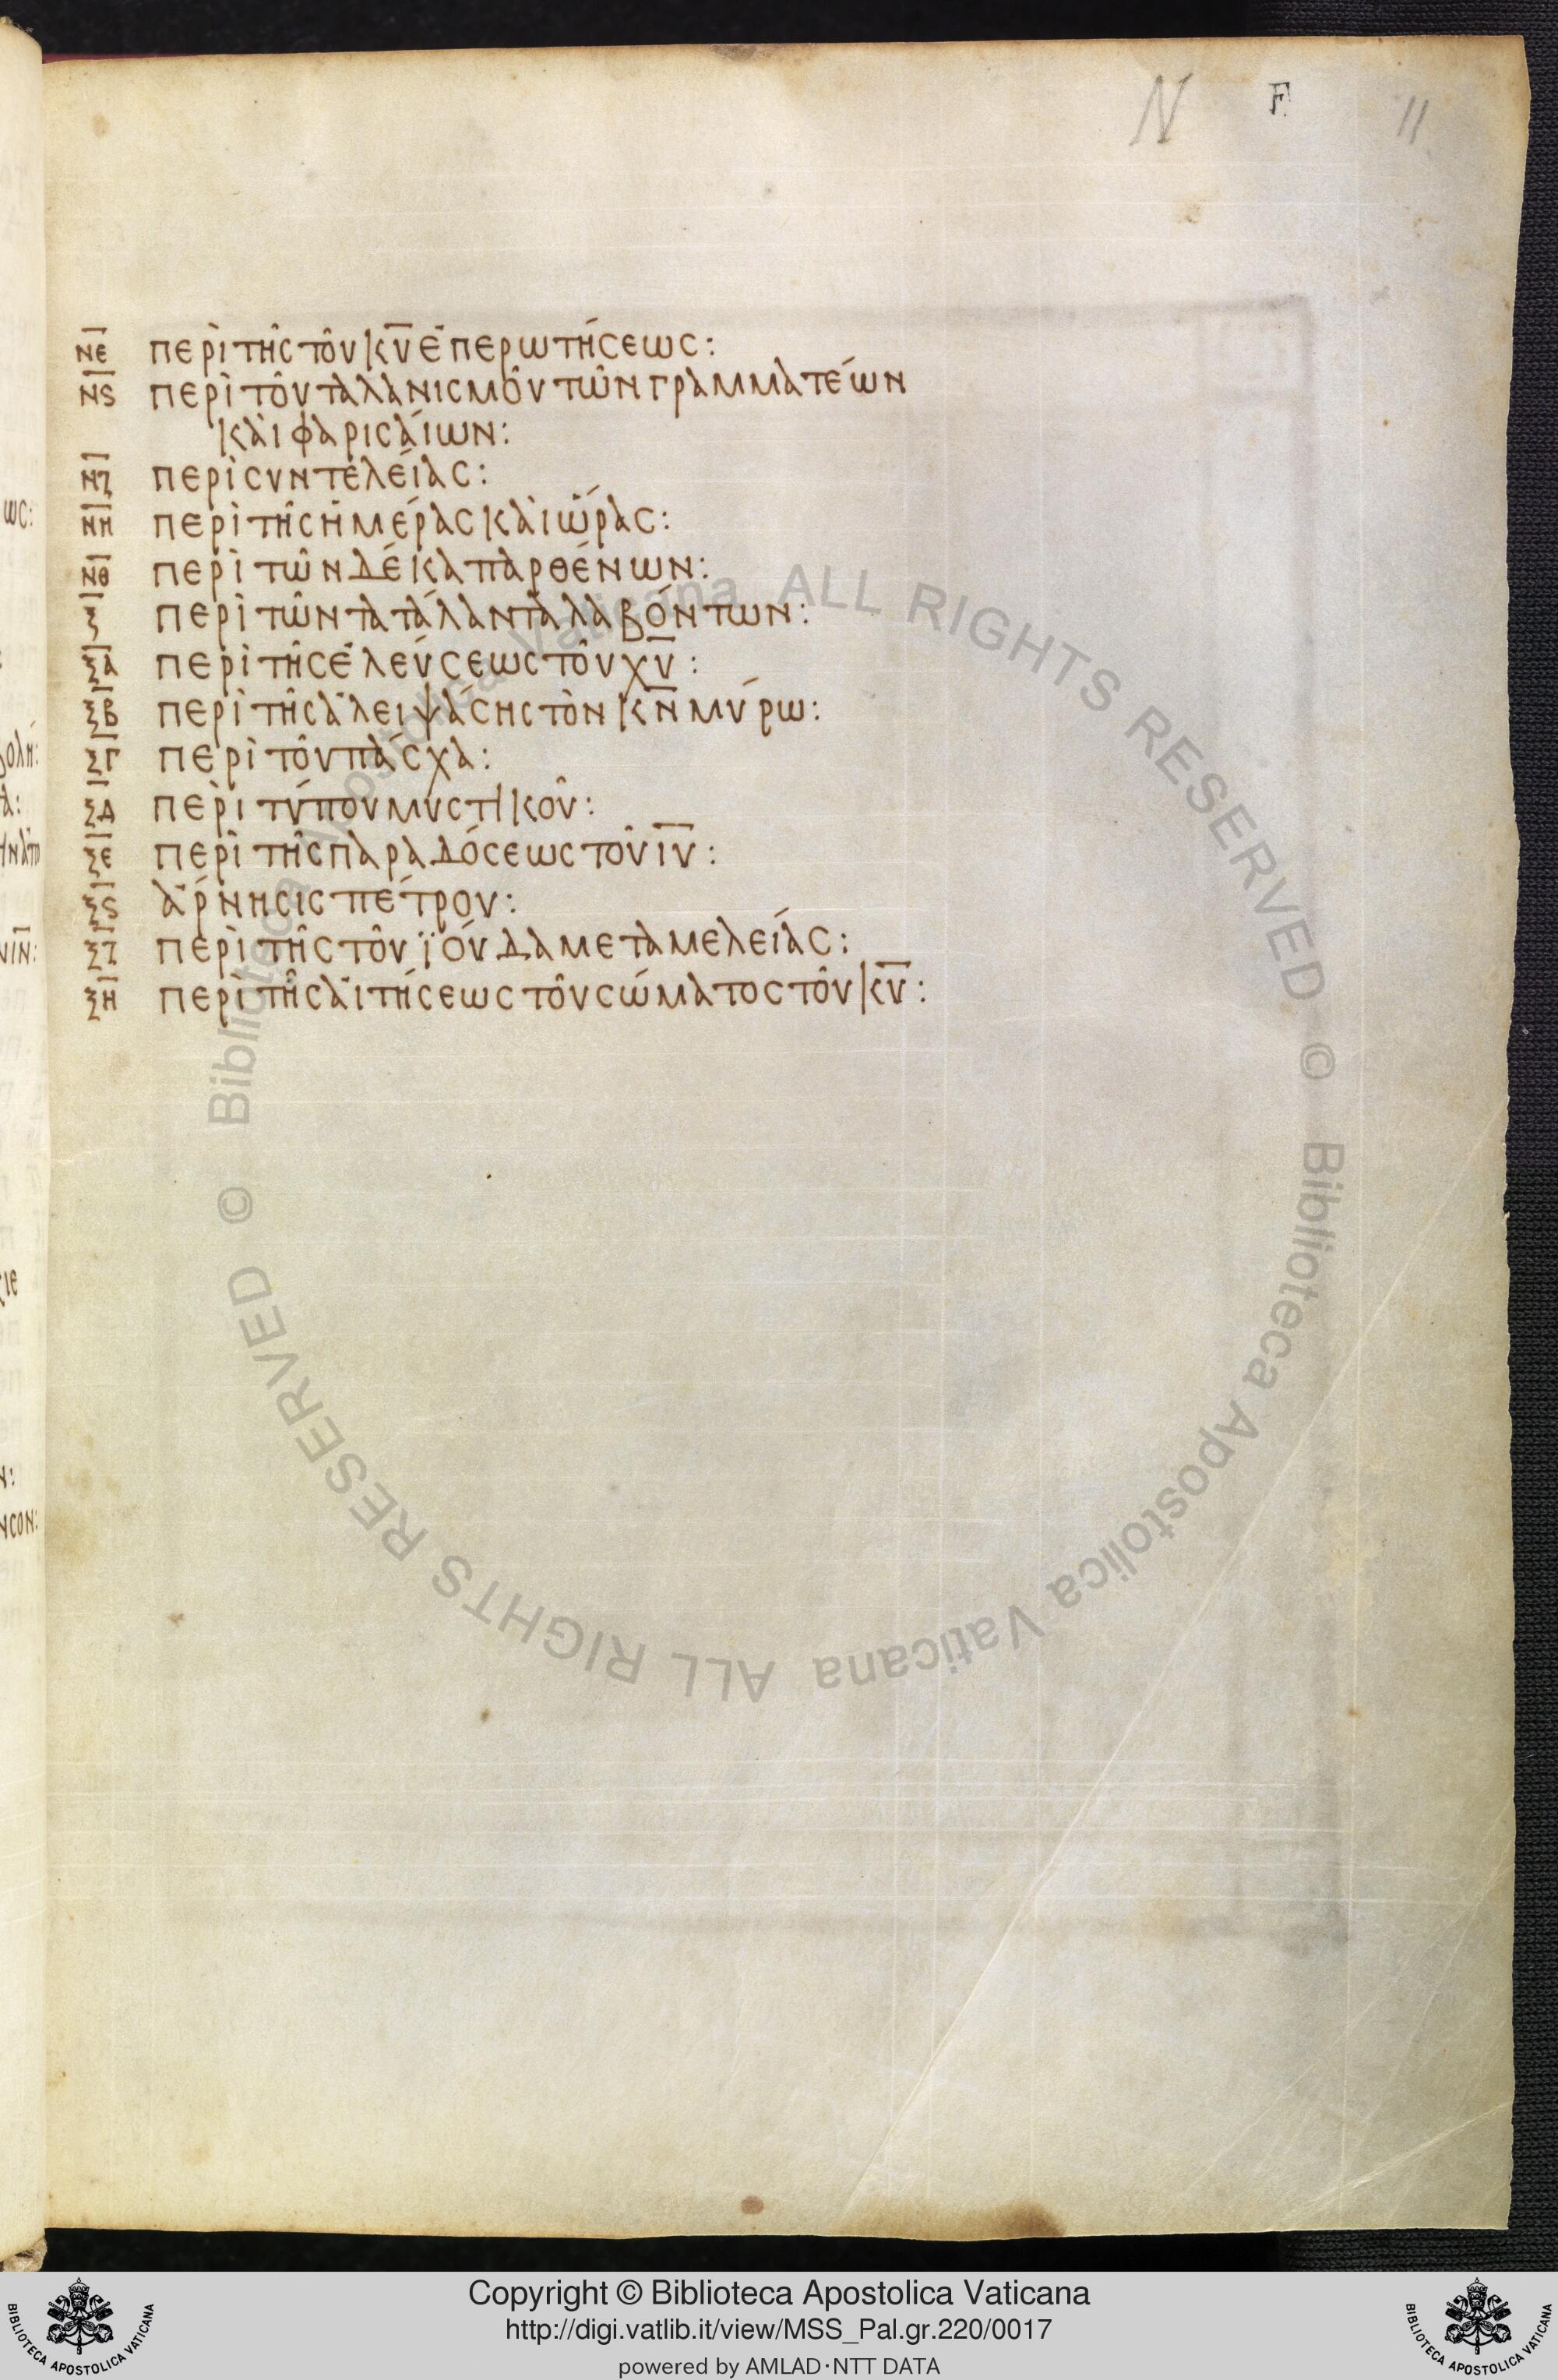 N F 11
ν̅ε̅ περὶ τῆς τοῦ κ̅υ̅ ἐπερωτήσεως:
ν̅ϛ̅ περὶ τοῦ ταλανισμοῦ τῶν γραμματέων
καὶ φαρισαίων:
ν̅ζ̅ περὶ συντελείας:
ν̅η̅ περὶ τῆς ἡμέρας καὶ ὥρας:
ν̅θ̅ περὶ τῶν δέκα παρθένων:
ξ̅ περὶ τῶν τὰ τάλαντα λαβόντων:
ξ̅α̅ περὶ τῆς ἐλεύσεως τοῦ χ̅υ̅:
ξ̅β̅ περὶ τῆς ἀλειψάσης τὸν κ̅ν̅ μύρω:
ξ̅γ̅ περὶ τοῦ πάσχα:
ξ̅δ̅ περὶ τύπου μυστικοῦ:
ξ̅ε̅ περὶ τῆς παραδόσεως τοῦ ι̅υ̅:
ξ̅ϛ̅ ἄρνησις πέτρου:
ξ̅ζ̅ περὶ τῆς τοῦ ϊούδα μεταμελείας:
ξ̅η̅ περὶ τῆς αἰτήσεως τοῦ σώματος τοῦ κ̅υ̅:
© Biblioteca Apostolica Vaticana ALL RIGHTS RESERVED © Biblioteca Apostolica Vaticana ALL RIGHTS RESERVED
Copyright © Biblioteca Apostolica Vaticana
http://digi.vatlib.it/view/MSS_Pal.gr.220/0017
powered by AMLAD·NTT DATA
BIBLIOTECA APOSTOLICA VATICANA
BIBLIOTECA APOSTOLICA VATICANA